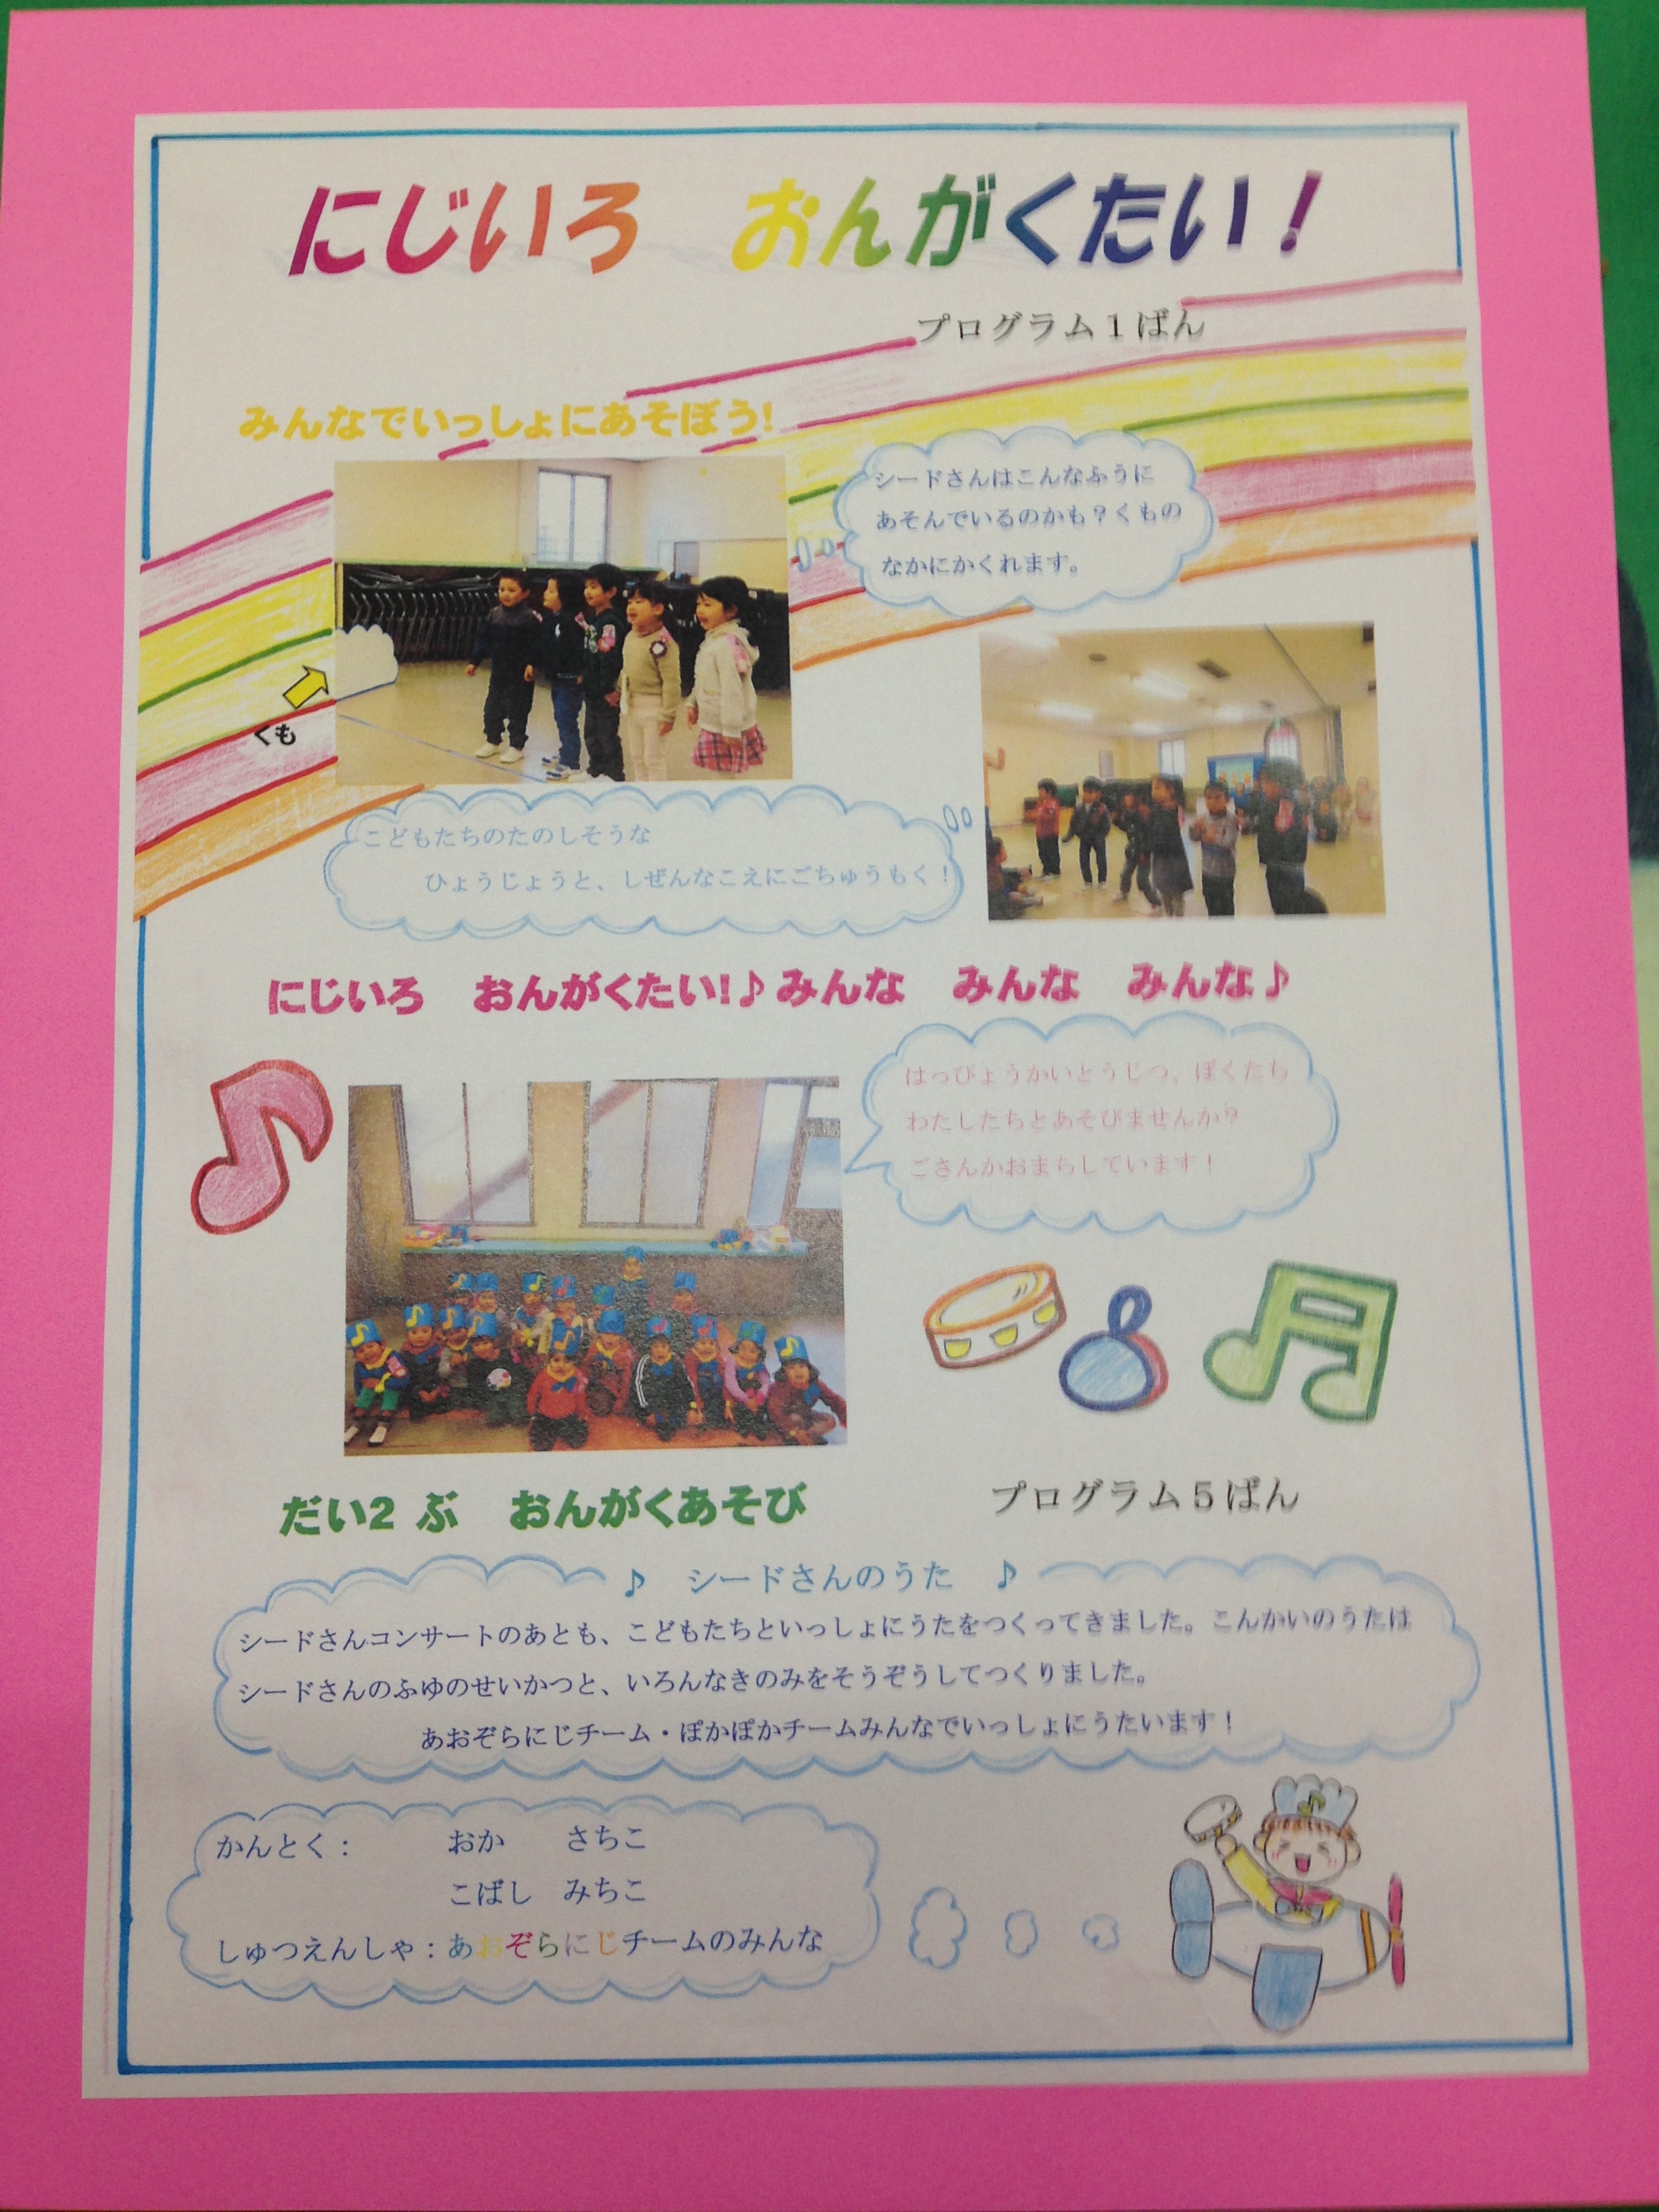 にじいろ　おんがくたい！
プログラム１ばん
みんなでいっしょにあそぼう!
シードさんはこんなふうに
あそんでいるのかも？くもの
なかにかくれます。
くも
こどもたちのたのしそうな
ひょうじょうと、しぜんなこえにごちゅうもく！
にじいろ　おんがくたい!♪みんな　みんな　みんな♪
はっぴょうかいとうじつ、ぼくたち
わたしたちとあそびませんか？
ごさんかおまちしています！
だい2 ぶ　おんがくあそび
プログラム５ばん
♪　シードさんのうた　♪
シードさんコンサートのあとも、こどもたちといっしょにうたをつくってきました。こんかいのうたは
シードさんのふゆのせいかつと、いろんなきのみをそうぞうしてつくりました。
あおぞらにじチーム・ぽかぽかチームみんなでいっしょにうたいます！
かんとく：　おか　さちこ
こばし　みちこ
しゅつえんしゃ：あおぞらにじチームのみんな